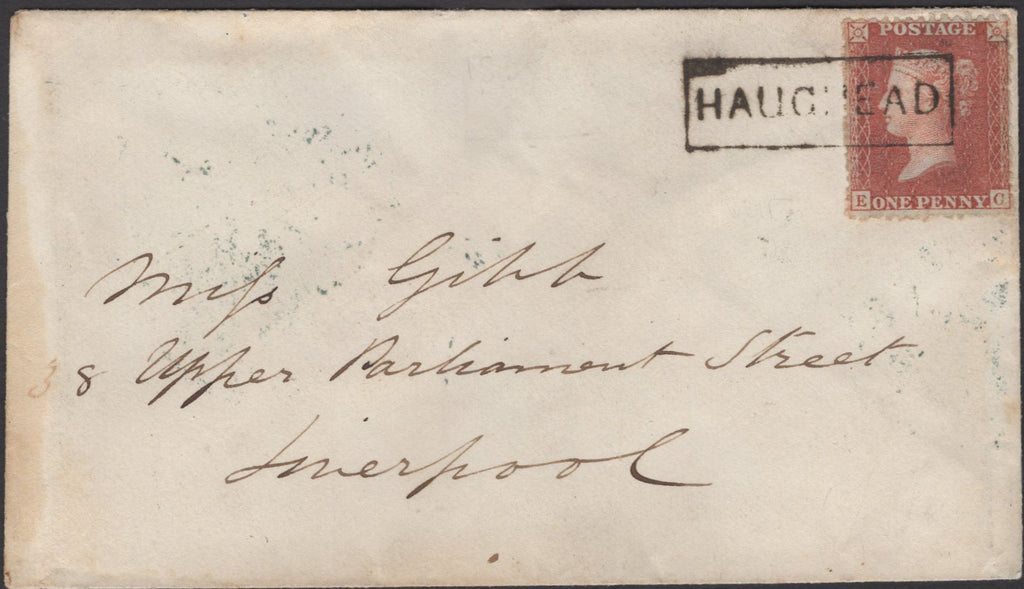 POSTAGE
HAUGHEAD
E ONE PENNY. C
Miss Gibb
38 Upper Parliament Street
Liverpool